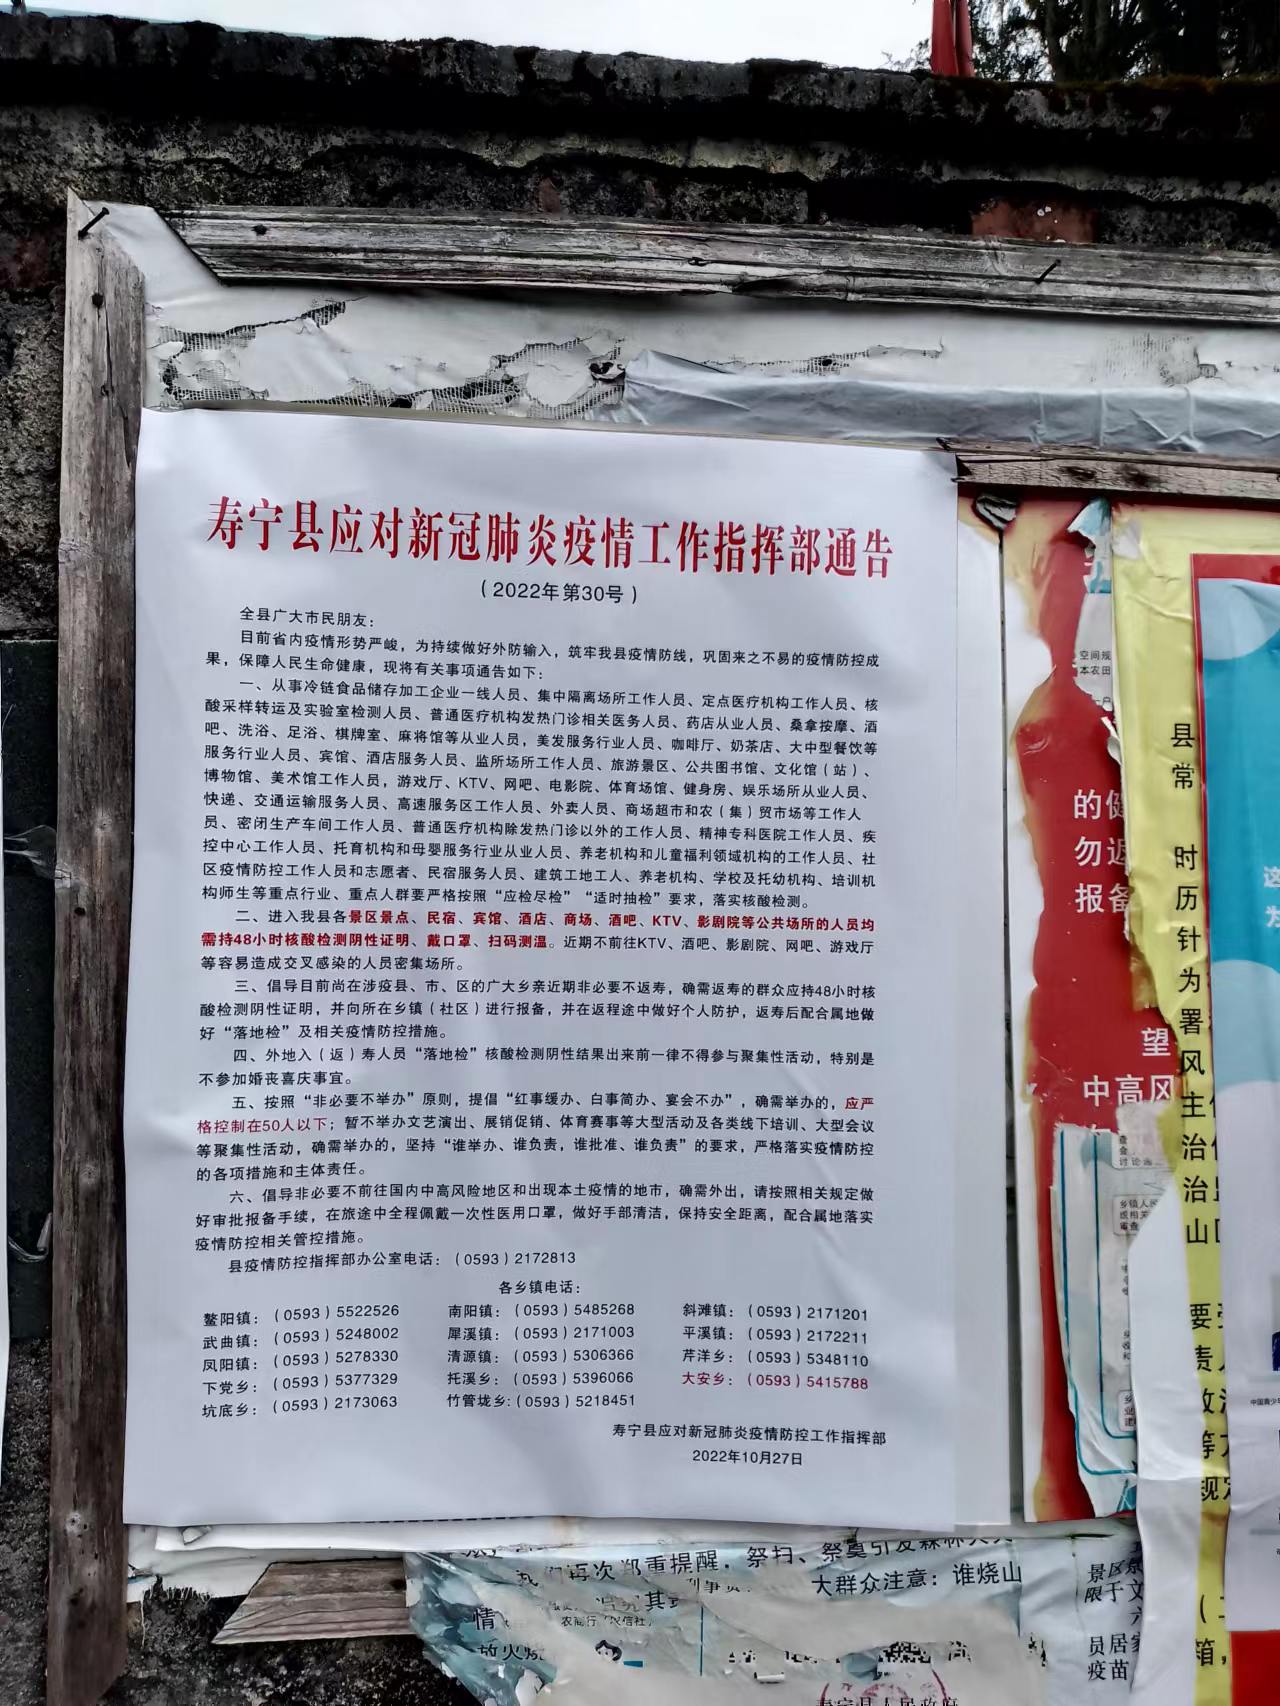 寿宁县应对新冠肺炎疫情工作指挥部通告
(2022年第30号)
全县广大市民朋友:
目前省内疫情形势严峻，为持续做好外防输入，筑牢我县疫情防线，巩固来之不易的疫情防控成
果，保障人民生命健康，现将有关事项通告如下:
一、从事冷链食品储存加工企业一线人员、集中隔离场所工作人员、定点医疗机构工作人员、核
酸采样转运及实验室检测人员、普通医疗机构发热门诊相关医务人员、药店从业人员、桑拿按摩、酒
吧、洗浴、足浴、棋牌室、麻将馆等从业人员，美发服务行业人员、咖啡厅、奶茶店、大中型餐饮等
服务行业人员、宾馆、酒店服务人员、监所场所工作人员、旅游景区、公共图书馆、文化馆(站)、
博物馆、美术馆工作人员，游戏厅、KTV、网吧、电影院、体育场馆、健身房、娱乐场所从业人员、
快递、交通运输服务人员、高速服务区工作人员、外卖人员、商场超市和农(集)贸市场等工作人
员、密闭生产车间工作人员、普通医疗机构除发热门诊以外的工作人员、精神专科医院工作人员、疾
控中心工作人员、托育机构和母婴服务行业从业人员、养老机构和儿童福利领域机构的工作人员、社
区疫情防控工作人员和志愿者、民宿服务人员、建筑工地工人、养老机构、学校及托幼机构、培训机
构师生等重点行业、重点人群要严格按照“应检尽检”“适时抽检”要求，落实核酸检测。
二、进入我县各景区景点、民宿、宾馆、酒店、商场、酒吧、KTV、影剧院等公共场所的人员均
需持48小时核酸检测阴性证明、戴口罩、扫码测温。近期不前往KTV、酒吧、影剧院、网吧、游戏厅
等容易造成交叉感染的人员密集场所。
三、倡导目前尚在涉疫县、市、区的广大乡亲近期非必要不返寿，确需返寿的群众应持48小时核
酸检测阴性证明，并向所在乡镇(社区)进行报备，并在返程途中做好个人防护，返寿后配合属地做
好“落地检”及相关疫情防控措施。
四、外地入(返)寿人员“落地检”核酸检测阴性结果出来前一律不得参与聚集性活动，特别是
不参加婚丧喜庆事宜。
五、按照“非必要不举办”原则，提倡“红事缓办、白事简办、宴会不办”，确需举办的，应严
格控制在50人以下；暂不举办文艺演出、展销促销、体育赛事等大型活动及各类线下培训、大型会议
等聚集性活动，确需举办的，坚持“谁举办、谁负责，谁批准、谁负责”的要求，严格落实疫情防控
的各项措施和主体责任。
六、倡导非必要不前往国内中高风险地区和出现本土疫情的地市，确需外出，请按照相关规定做
好审批报备手续，在旅途中全程佩戴一次性医用口罩，做好手部清洁，保持安全距离，配合属地落实
疫情防控相关管控措施。
县疫情防控指挥部办公室电话：(0593)2172813
各乡镇电话：
鳌阳镇：(0593)5522526 南阳镇：(0593)5485268 斜滩镇：(0593)2171201
武曲镇：(0593)5248002 犀溪镇：(0593)2171003 平溪镇：(0593)2172211
凤阳镇：(0593)5278330 清源镇：(0593)5306366 芹洋乡：(0593)5348110
下党乡：(0593)5377329 托溪乡：(0593)5396066 大安乡：(0593)5415788
坑底乡：(0593)2173063 竹管垅乡:(0593)5218451
寿宁县应对新冠肺炎疫情防控工作指挥部
2022年10月27日
空间规
本农田
的健
勿返
报备
望
中高风
县
常
时
历
针
为
署
风
主
治
治
山
要
责
等
规定
乡镇人民
规相关
审查
中国青少年
我们再次郑重提醒，祭扫、祭奠引发森林火
大群众注意：谁烧山
情
农商行(农信社)
放火烧
景区
限于
文
六
员居家
疫苗
箱，
寿宁县人民政府